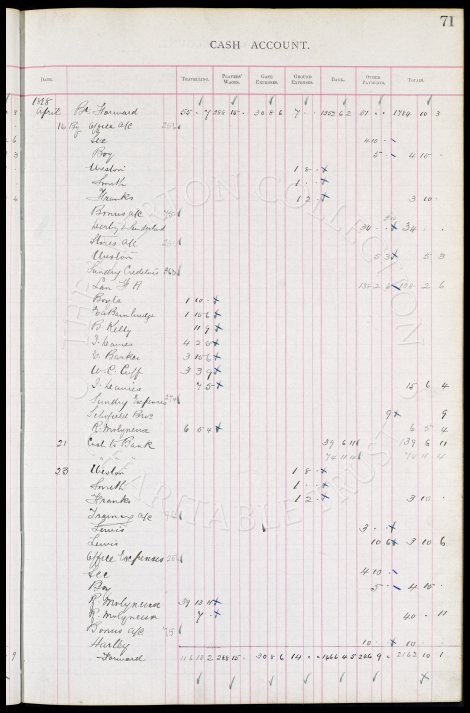 71
CASH ACCOUNT.
DATE. TRAVELLING. PLAYERS' WAGES. GATE EXPENSES. GROUND EXPENSES. BANK. OTHER PAYMENTS. TOTALS.
1928
April Bt Forward 55 - 7 288 15 - 30 8 6 7 - - 1352 6 2 51 - - 1784 10 3
16 By Office a/c
Sec 4 10 -
Boy 5 - 4 15 -
Weston 1 8 -
Smith 1 - -
Franks 1 2 - 3 10 -
Bonus a/c
Derby & Sunderland 34 - - 34 - -
Stores a/c
Weston 5 3 5 3
Sundry Creditors
Lan F A 2 6
Boyle 1 10 -
Ed Bainbridge 1 10 6
B. Kelly 11 9
4 2 0
V. Barker 3 10 6
W. C. Cuff 3 3 9
7 5 15 6 4
Sundry Expenses
Schofield Bros 9 9
R. Molyneux 6 5 4 6 5 4
21 Cash to Bank 139 6 11 139 6 11
" " " 74 11 4 74 11 4
23 Weston 1 8 -
Smith 1 - -
Franks 1 2 - 3 10 -
Training a/c
Lewis 3 - -
Lewis 10 6 3 10 6
Office Expenses
Sec 4 10 -
Boy 5 - 4 15 -
R. Molyneux 39 13 11
R. Molyneux 7 - 40 - 11
Bonus a/c
Hartley 10 - - 10 - -
Forward 116 12 2 288 15 - 30 8 6 14 - - 1566 4 5 2162 10 1
THE BARTON COLLECTION
CHARITABLE TRUST